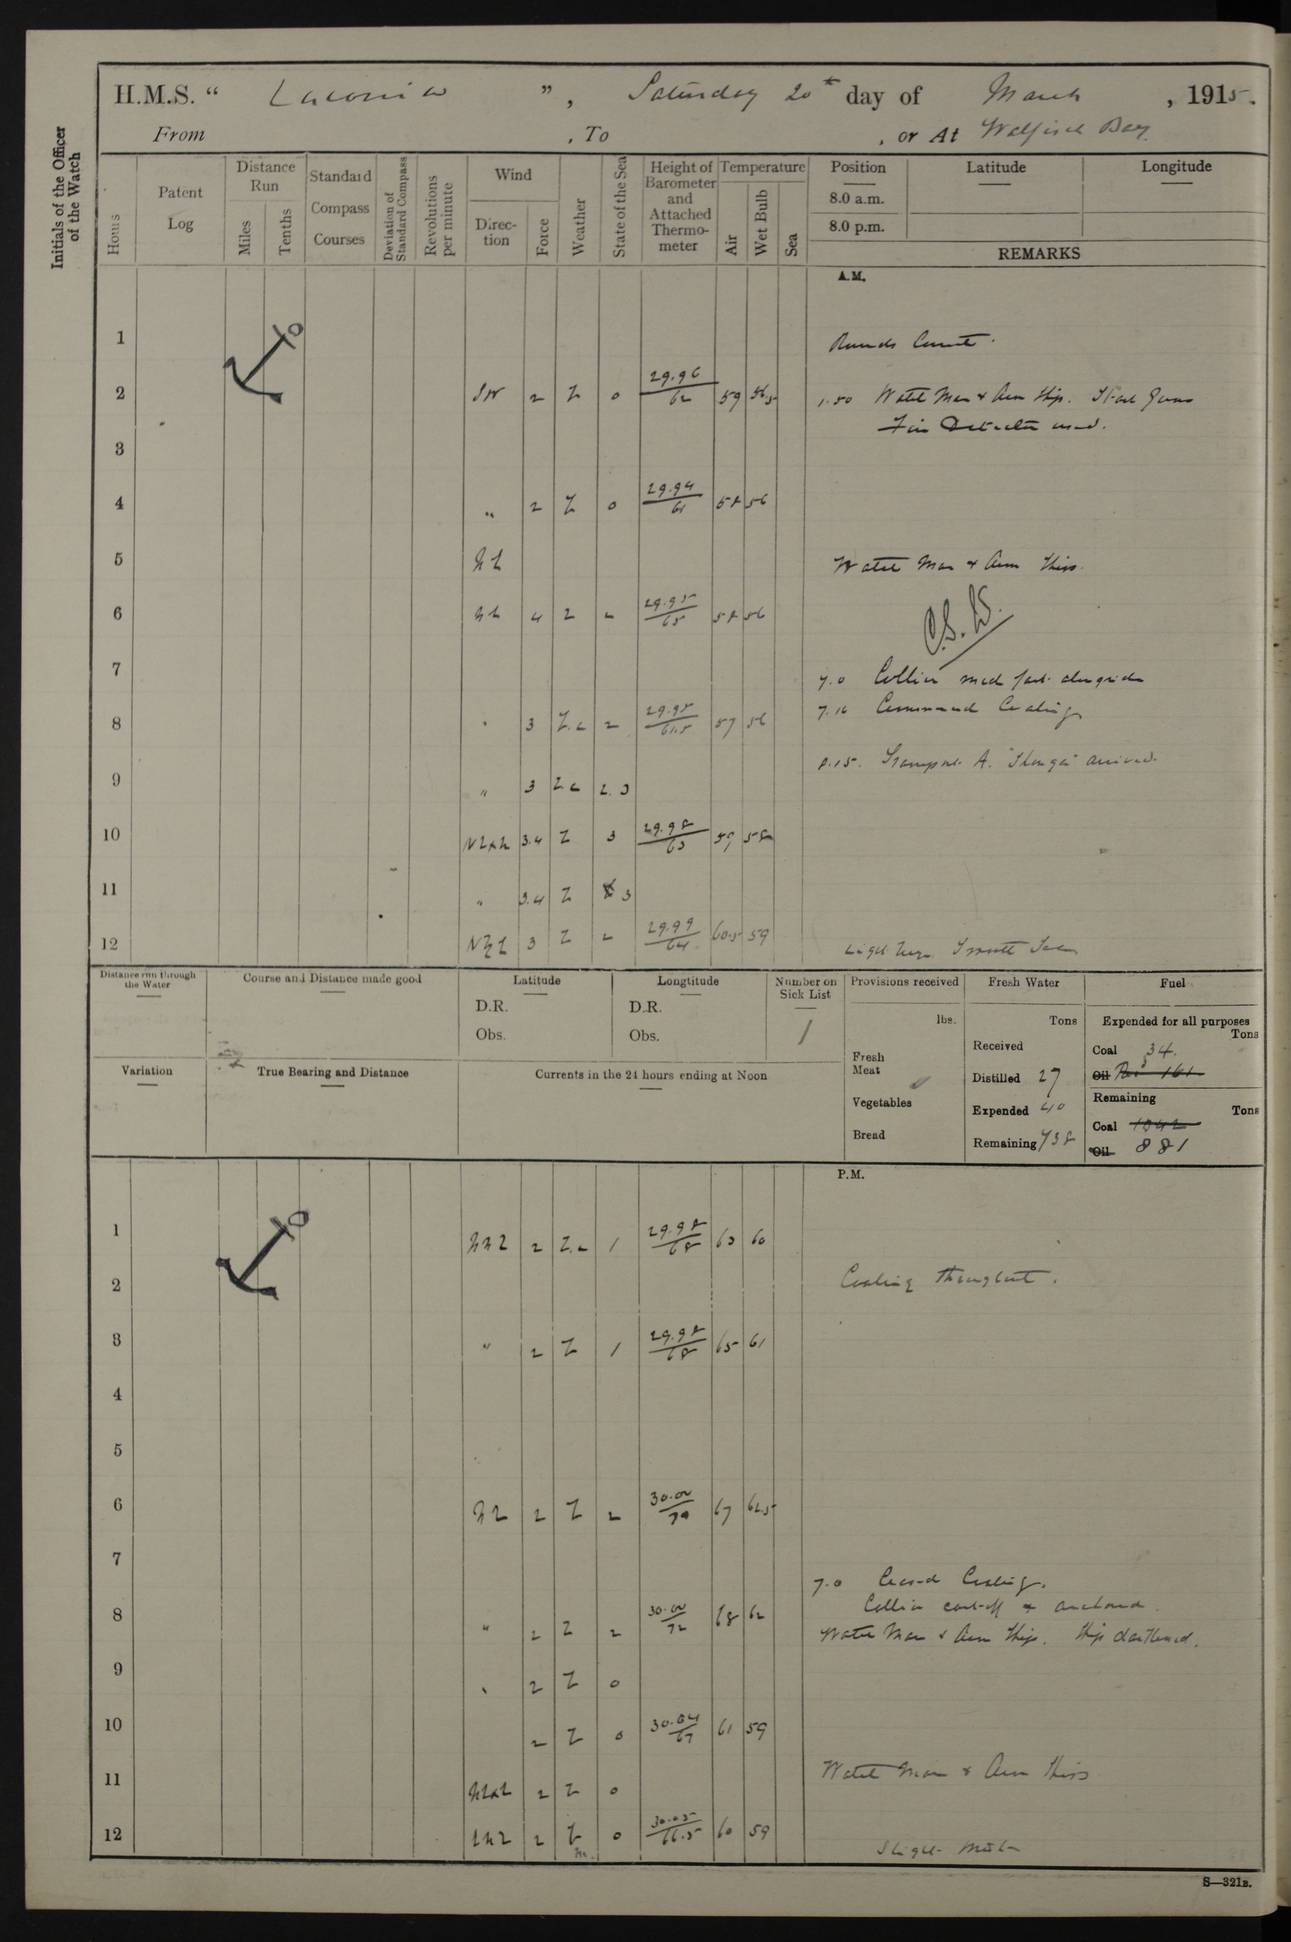 H.M.S. “ Laconia ”, Saturday 20th day of March, 1915.
From , To , or At Walfisch Bay
Initials of the Officer of the Watch
Hours
Patent Log
Distance Run
Miles
Tenths
Standard Compass Courses
Deviation of Standard Compass
Revolutions per minute
Wind
Direction
Force
Weather
State of the Sea
Height of Barometer and Attached Thermometer
Temperature
Air
Wet Bulb
Sea
Position
8.0 a.m.
8.0 p.m.
Latitude
Longitude
REMARKS
A.M.
1 Rounds Correct.
2 SW 2 Z 0 29.96 62 59 56.5 1.50 Watch Man & Arm Ship.
3
4 " 2 Z 0 29.94 61 58 56
5 Watch Man & Arm Ship.
6 4 2 29.95 65 58 56
C.S.W.
7 7.0 Collier made fast alongside
8 " 3 2 29.95 61.5 57 56 Commenced Coaling
9 " 3 2.3 8.15. Transport A. "Ilonga" arrived.
10 3.4 Z 3 29.98 63 59 58
11 " 3.4 Z 3
12 3 Z 2 29.99 64 60.5 59 Smooth Sea
Distance run through the Water
Course and Distance made good
Latitude
D.R.
Obs.
Longtitude
D.R.
Obs.
Number on Sick List
1
Provisions received
lbs.
Fresh Meat 0
Vegetables
Bread
Fresh Water
Tons
Received
Distilled 27
Expended 40
Remaining 738
Fuel
Expended for all purposes
Tons
Coal 34.
Oil 161
Remaining
Tons
Coal 1042
Oil 881
Variation
True Bearing and Distance
Currents in the 24 hours ending at Noon
P.M.
1 2 1 29.98 68 63 60
2 Coaling throughout.
3 " 2 Z 1 29.98 68 65 61
4
5
6 2 Z 2 30.00 70 67 62.5
7 7.0 Ceased Coaling.
Collier cast off & anchored.
8 " 2 Z 2 30.00 72 68 62 Watch Man & Arm Ship. Ship darkened.
9 " 2 Z 0
10 2 Z 0 30.04 67 61 59
11 2 Z 0 Watch Man & Arm Ship
12 2 0 30.05 66.5 60 59 Slight Mist
S—321B.